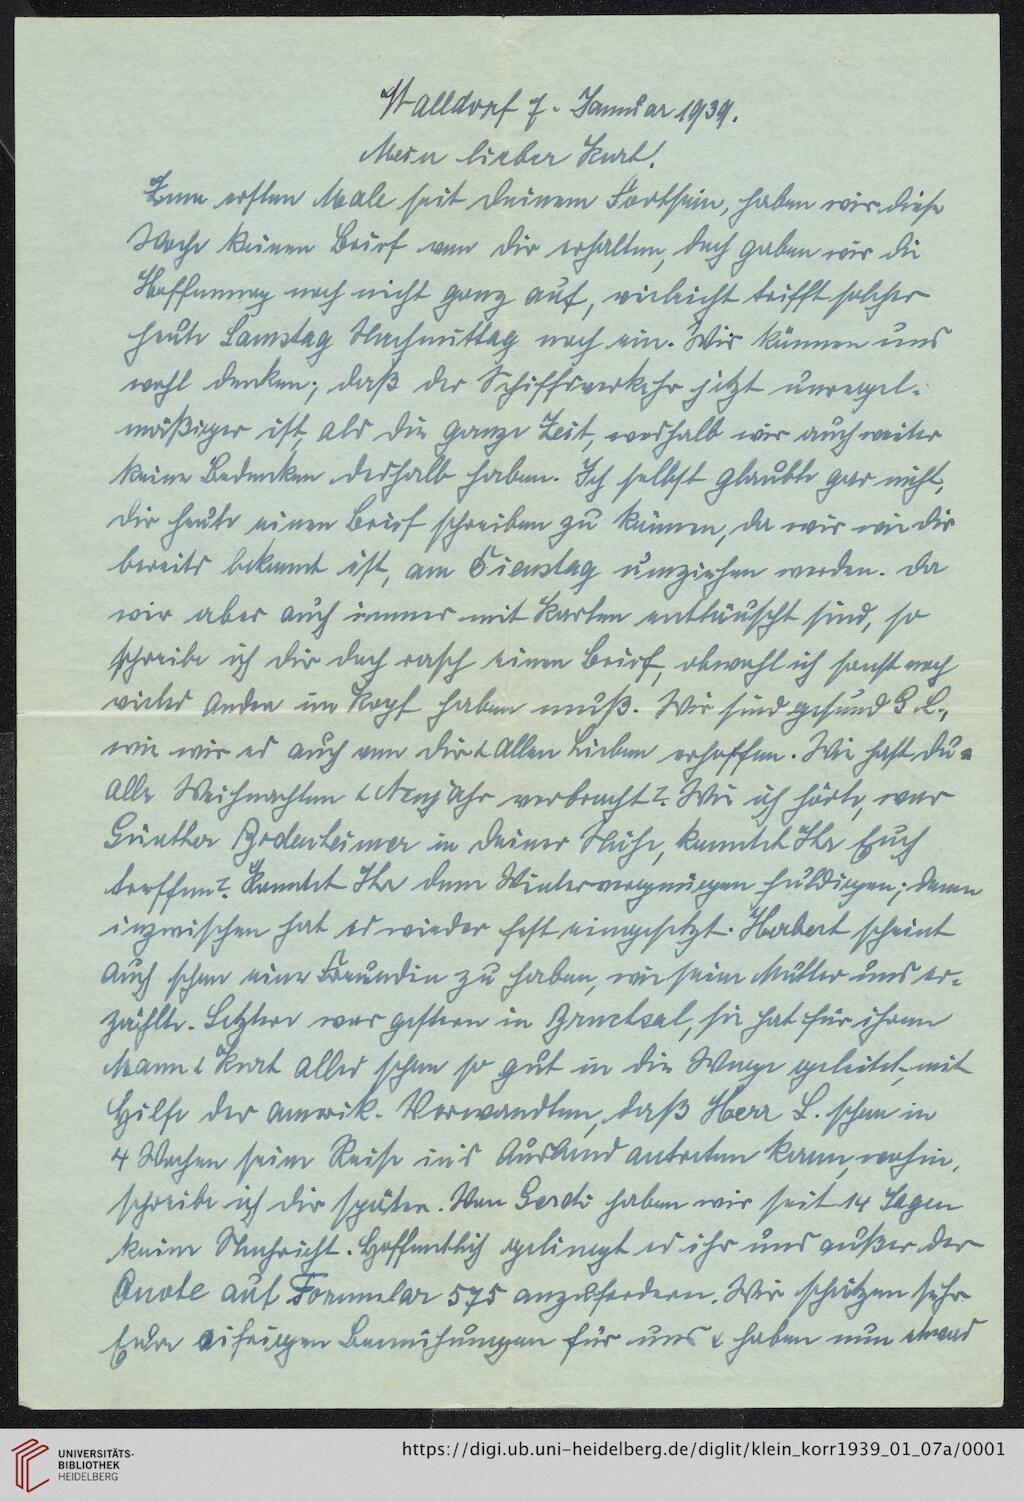 Walldorf 7. Januar 1939.
Mein lieber Kurt!
Zum ersten Male seit Deinem Fortsein, haben wir diese
Woche keinen Brief von Dir erhalten, doch gaben wir die
Hoffnung noch nicht ganz auf, vielleicht trifft solcher
heute Samstag Nachmittag noch ein. Wir können uns
wohl denken, daß der Schiffsverkehr jetzt unregel-
mäßiger ist, als die ganze Zeit, weshalb wir auch weiter
keine Bedenken deshalb haben. Ich selbst glaubte gar nicht,
Dir heute einen Brief schreiben zu können, da wir wie Dir
bereits bekannt ist, am Dienstag umziehen werden. Da
wir aber auch immer mit Karten enttäuscht sind, so
schreibe ich Dir doch rasch einen Brief, obwohl ich sonst noch
vieles andere im Kopf haben muß. Wir sind gesund G. L.,
wie wir es auch von Dir & allen Lieben erhoffen. Wie hast Du
alle Weihnachten & Neujahr verbracht? Wie ich hörte, war
Günther Bodenheimer in Deiner Nähe, konntet Ihr Euch
treffen? Konntet Ihr dem Wintervergnügen huldigen; denn
inzwischen hat es wieder fest eingesetzt. Herbert scheint
auch schon eine Freundin zu haben, wie seine Mutter uns er-
zählte. Letztere war gestern in Bruchsal, sie hat für ihren
Mann & Kurt alles schon so gut in die Wege geleitet, mit
Hilfe der amerik. Verwandten, daß Herr L. schon in
4 Wochen seine Reise in's Ausland antreten kann, wohin,
schreibe ich Dir später. Von Gerdi haben wir seit 14 Tagen
keine Nachricht. Hoffentlich gelingt es ihr uns außer der
Quote auf Formular 575 anzufordern. Wir schätzen sehr
Eure eifrigen Bemühungen für uns & haben nun etwas
UNIVERSITÄTS-
BIBLIOTHEK
HEIDELBERG
https://digi.ub.uni-heidelberg.de/diglit/klein_korr1939_01_07a/0001